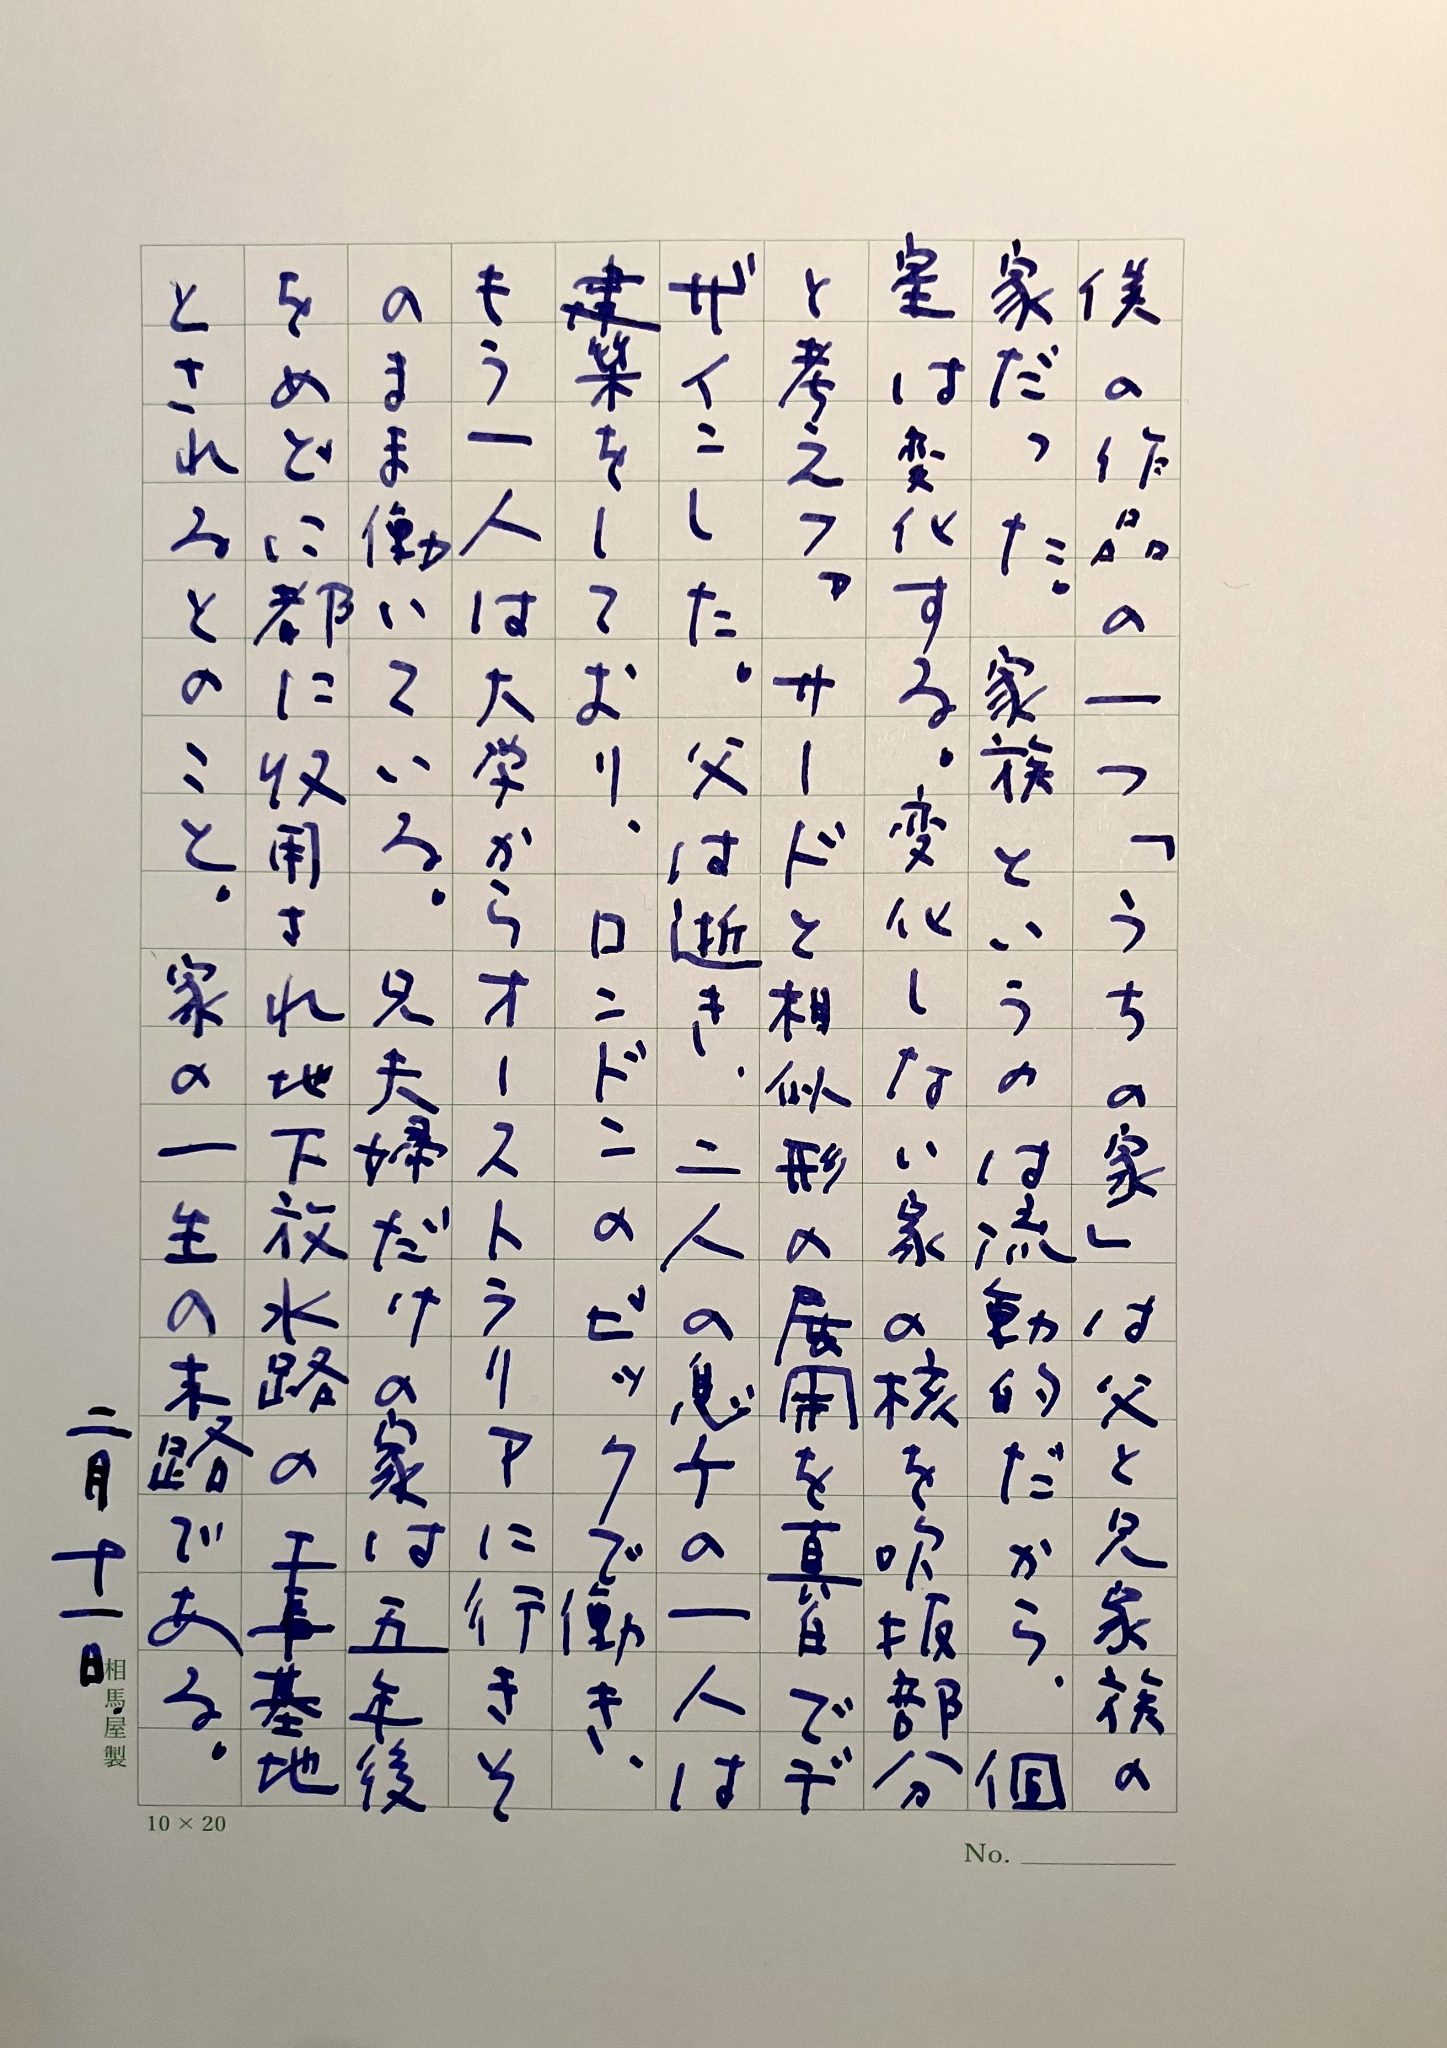 僕の作品の一つ「うちの家」は父と兄家族の
家だった。家族というのは流動的だから、個
室は変化する。変化しない家の核を吹抜部分
と考えて、サードと相似形の展開を真箱でデ
ザインした。父は逝き、二人の息子の一人は
建築をしており、ロンドンのビッグで働き、
もう一人は大学からオーストラリアに行きそ
のまま働いている。兄夫婦だけの家は五年後
をめどに都に収用され地下放水路の工事基地
とされるとのこと。家の一生の末路である。
二月十一日
相馬屋製
10 × 20
No.